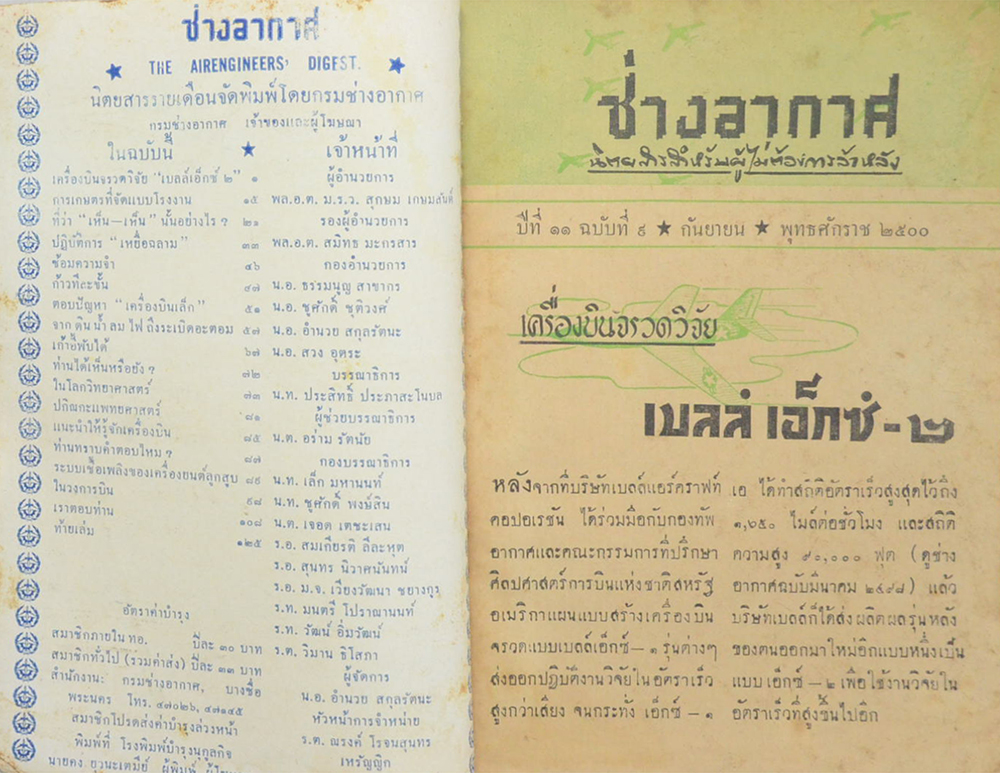 ช่างอากาศ
THE AIRENGINEERS' DIGEST.
นิตยสารรายเดือนจัดพิมพ์โดยกรมช่างอากาศ
กรมช่างอากาศ เจ้าของและผู้โฆษณา
ในฉบับนี้
เครื่องบินจรวดวิจัย "เบลล์เอ็กซ์ ๒" ๑
การเกษตรที่จัดแบบโรงงาน ๑๕
ที่ว่า "เห็น—เห็น" นั้นอย่างไร ? ๒๑
ปฏิบัติการ "เหยื่อฉลาม" ๓๓
ซ้อมความจำ ๔๖
ก้าวทีละขั้น ๔๗
ตอบปัญหา "เครื่องบินเล็ก" ๕๑
จาก ดิน น้ำ ลม ไฟ ถึงระเบิดอะตอม ๕๗
เก้าอี้พับได้ ๖๗
ท่านได้เห็นหรือยัง ? ๗๒
ในโลกวิทยาศาสตร์ ๗๓
ปกิณกะแพทยศาสตร์ ๘๑
แนะนำให้รู้จักเครื่องบิน ๘๕
ท่านทราบคำตอบไหม ? ๘๗
ระบบเชื้อเพลิงของเครื่องยนต์ลูกสูบ ๘๙
ในวงการบิน ๙๘
เราตอบท่าน ๑๐๘
ท้ายเล่ม ๑๒๕
อัตราค่าบำรุง
สมาชิกภายใน ทอ. ปีละ ๓๐ บาท
สมาชิกทั่วไป (รวมค่าส่ง) ปีละ ๓๓ บาท
สำนักงาน: กรมช่างอากาศ, บางซื่อ
พระนคร โทร. ๔๗๐๒๖, ๔๗๑๔๕
สมาชิกโปรดส่งค่าบำรุงล่วงหน้า
พิมพ์ที่ โรงพิมพ์บำรุงนุกูลกิจ
เจ้าหน้าที่
ผู้อำนวยการ
พล.อ.ต. ม.ร.ว. สุกษม เกษมสันต์
รองผู้อำนวยการ
พล.อ.ต. สมิทธ มะกรสาร
กองอำนวยการ
น.อ. ธรรมนูญ สาขากร
น.อ. ชูศักดิ์ ชุติวงศ์
น.อ. อำนวย สกุลรัตนะ
น.อ. สวง อุตระ
บรรณาธิการ
น.ท. ประสิทธิ์ ประภาสะโนบล
ผู้ช่วยบรรณาธิการ
น.ต. อร่าม รัตนัย
กองบรรณาธิการ
น.ท. เล็ก มหานนท์
น.ท. ชูศักดิ์ พงษ์สิน
น.ต. เจอด เตชะเสน
ร.อ. สมเกียรติ ลีละหุต
ร.อ. สุนทร นิวาศนันทน์
ร.อ. ม.จ. เวียงวัฒนา ชยางกูร
ร.ท. มนตรี โปราณานนท์
ร.ท. วัฒน์ อิ่มวัฒน์
ร.ต. วิมาน ธิโสภา
ผู้จัดการ
น.อ. อำนวย สกุลรัตนะ
หัวหน้าการจำหน่าย
ร.ต. ณรงค์ โรจนสุนทร
เหรัญญิก
ช่างอากาศ
นิตยสารสำหรับผู้ไม่ต้องการล้าหลัง
ปีที่ ๑๑ ฉบับที่ ๙ ★ กันยายน ★ พุทธศักราช ๒๕๐๐
เครื่องบินจรวดวิจัย
เบลล์ เอ็กซ์ - ๒
หลังจากที่บริษัทเบลล์แอร์คราฟท์
คอปอเรชัน ได้ร่วมมือกับกองทัพ
อากาศและคณะกรรมการที่ปรึกษา
ศิลปศาสตร์การบินแห่งชาติสหรัฐ
อเมริกาแผนแบบสร้างเครื่องบิน
จรวดแบบเบลล์เอ็กซ์ — ๑ รุ่นต่างๆ
ส่งออกปฏิบัติงานวิจัยในอัตราเร็ว
สูงกว่าเสียง จนกระทั่ง เอ็กซ์ — ๑
เอ ได้ทำสถิติอัตราเร็วสูงสุดไว้ถึง
๑,๖๕๐ ไมล์ต่อชั่วโมง และสถิติ
ความสูง ๙๐,๐๐๐ ฟุต ( ดูช่าง
อากาศฉบับมีนาคม ๒๔๙๘ ) แล้ว
บริษัทเบลล์ก็ได้ส่งผลิตผลรุ่นหลัง
ของตนออกมาใหม่อีกแบบหนึ่งเป็น
แบบ เอ็กซ์ — ๒ เพื่อใช้งานวิจัยใน
อัตราเร็วที่สูงขึ้นไปอีก